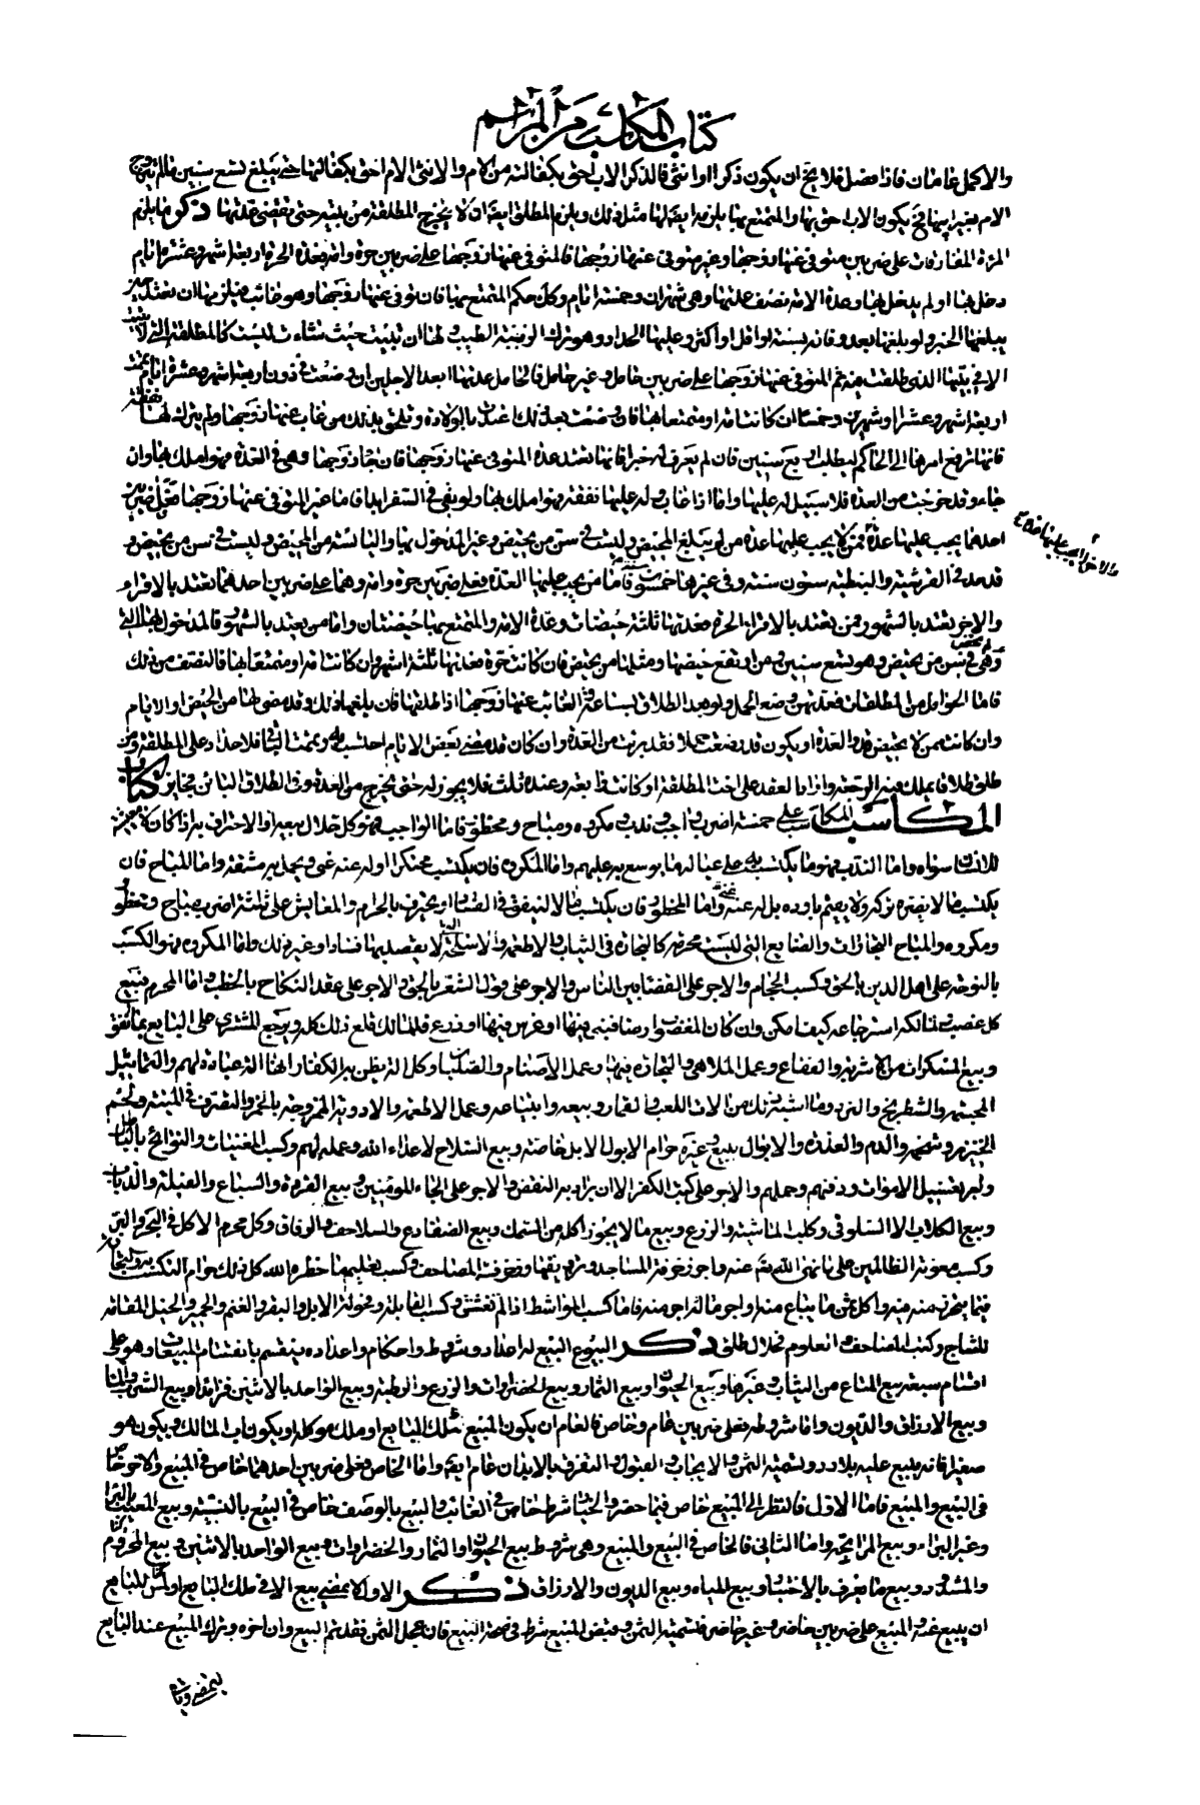 كتاب المكاسب من المراسم
والاكمل عامان فاذا فصل فلا يخ ان يكون ذكرا او انثى فالذكر الاب احق بكفالته من الام والانثى الام احق بكفالتها حتى يبلغ تسع سنين مالم تتزوج
الام بغير ابيها فح يكون الاب احق بها والمتمتع بها يلزمه ايضا لها مثل ذلك ويلزم المطلق ايضا ان لا يخرج المطلقة من بيته حتى تنقضي عدتها ذكر ما يلزم
المرءة المفارقات على ضربين متوفى عنها زوجها وغير متوفى عنها زوجها فالمتوفى عنها زوجها على ضربين حرة وامة فعدة الحرة اربعة اشهر وعشرة ايام
دخل بها او لم يدخل بها وعدة الامة نصف عدتها وهي شهران وخمسة ايام وكل حكم المتمتع بها فان توفى عنها زوجها وهو غائب فيلزمها ان تعتد حين
يبلغها الخبر ولو بلغها بعد وفاته بسنة او اقل او اكثر وعليها الحداد وهو ترك الزينة الطيب ولها ان تبيت حيث شاءت ليست كالمطلقة التي لا تبيت
الا في بيتها الذي طلقت فيه ثم المتوفى عنها زوجها على ضربين حامل وغير حامل فالحامل عدتها ابعد الاجلين ان وضعت في دون اربعة اشهر وعشرة ايام تممت
اربعة اشهر وعشرا او شهرين وخمسا ان كانت امة او متمتعا بها فان وضعت بعد ذلك عدت بالولادة ويلحق بذلك من غاب عنها زوجها ولم يترك لها نفقة
فانها ترفع امرها الى الحاكم ليطلب اربع سنين فان لم يعرف له خبر فانها تعتد عدة المتوفى عنها زوجها فان جاء زوجها وهي في العدة فهو املك بها وان
جاء وقد خرجت من العدة فلا سبيل له عليها واما اذا غاب وله عليها نفقة فهو املك بها ولو بقي في السفر ابدا فاما غير المتوفى عنها زوجها فعلى ضربين
احدهما يجب عليها عدة فمن لا يجب عليها عدة من لم يبلغ المحيض وليست في سن من يحيض وغير المدخول بها واليائسة من المحيض وليست في سن من يحيض و
والاخر لا يجب عليها عدة
قد حد في القرشية والنبطية ستون سنة وفي غيرها خمسون فاما من يجب عليها العدة فعلى ضربين حرة وامة وهما على ضربين احدهما تعتد بالاقراء
والاخر تعتد بالشهور فمن تعتد بالاقراء الحرة فعدتها ثلثة حيضات وعدة الامة والمتمتع بها حيضتان واما من يعتد بالشهور فالمدخول بها التي لم تحض
وهي في سن من يحيض وهو تسع سنين ومن ارتفع حيضها ومثلها من يحيض فان كانت حرة فعدتها ثلثة اشهر وان كانت امة او متمتعا بها فالنصف من ذلك
فاما الحوامل من المطلقات فعدتهن وضع الحمل ولو بعد الطلاق بساعة والغائب عنها زوجها اذا طلقها فان بلغها ذلك وقد مضى لها من الحيض والايام
وان كانت ممن لا يحيض قدر العدة او يكون قد وضعت حملا فقد برئت من العدة وان كان قد مضى بعض الايام احتسب به وتممت الباقي فلا حداد على المطلقة ومن
طلق طلاقا يملك فيه الرجعة واراد العقد على اخت المطلقة او كانت رابعة وعنده ثلث فلا يجوز له حتى يخرج من العدة وفي الطلاق البائن فجائز كتاب
المكاسب المكاسب على خمسة اضرب واجب وندب ومكروه ومباح ومحظور فاما الواجب فهو كل حلال بيعه او الاحتراف به اذا كان لا معيشة
للانسان سواه واما الندب فهو ما يكتسب به على عياله ما يوسع به عليهم واما المكروه فان يكتسب محتكرا او له عنه غنى ويحمل به مشقة واما المباح فان
يكتسب ما لا يضره تركه ولا يقيم باوده بل له عنه غنى واما المحظور فان يكتسب مالا لينفق في الفساد او يحترف بالحرام والمعايش على ثلثة اضرب مباح ومحظور
ومكروه والمباح التجارات والصنايع التي ليست محرمة كالتجارة في الثياب والاطعمة والاسلحة التي لا يقصد بها فسادا وغير ذلك واما المكروه فهو الكسب
بالنوحة على اهل الدين بالحق وكسب الحجام والاجر على القضاء بين الناس والاجر على قول الشعر بالحق والاجر على عقد النكاح بالخطب واما المحرم فبيع
كل غصب لمالكه استرجاعه كيف امكن وان كان المغصوب ارضا فبنى فيها او غرس فيها او زرع فللمالك قلع ذلك كله ويرجع المشتري على البايع بما انفق
وبيع المسكرات من الاشربة والفقاع وعمل الملاهي والتجارة فيها وعمل الاصنام والصلبان وكل الة يظن بها الكفار انها الة عبادة لهم والتماثيل
المجسمة والشطرنج والنرد وما اشبه ذلك من الات اللعب والقمار وبيعه وابتياعه وعمل الاطعمة والادوية الممزوجة بالخمر والتصرف في الميتة ولحم
الخنزير وشحمه والدم والعذرة والابوال ببيع وغيره حرام الا بول الابل خاصة وبيع السلاح لاعداء الله وعمله لهم وكسب المغنيات والنوائح بالباطل
واجر تغسيل الاموات ودفنهم وحملهم والاجر على كتب الكفر الا ان يراد به النقض والاجر على هجاء المؤمنين وبيع القردة والسباع والفيلة والذباب
وبيع الكلاب الا السلوقي وكلب الماشية والزرع وبيع ما لا يجوز اكله من السمك وبيع الضفادع والسلاحف والرقاق وكل محرم الاكل في البحر والبر
وكسب معونة الظالمين على ما نهى الله عنه واجر زخرفة المساجد وتزويقها وزخرفة المصاحف وكسب تعليم ما حظره الله كل ذلك حرام التكسب به والتجارة
فيما يصرف منه فيه واكل ثمن ما يباع منه واجر ما اتخذ اجر منه فاما كسب المواشط اذا لم تغشش وكسب القابلة وفحولة الابل والبقر والغنم والحمير والخيل المقامة
للنتاج وكتب المصاحف والعلوم فحلال طلق ذكر البيوع البيع له اعداد وشروط واحكام واعداده ينقسم بانقسام المبيعات وهو على
اقسام سبعة بيع المتاع من الثياب وغيرها وبيع الحيوان وبيع الثمار وبيع الخضراوات والزرع والرطبة وبيع الواحد بالاثنين فزائدا وبيع الشرب والماء
وبيع الارزاق والديون واما شروطه فعلى ضربين عام وخاص فالعام ان يكون المبيع ملك البايع او ملك موكله او يكون اب المالك ويكون هو
صغيرا فانه يبيع عليه بلا رد وتسمية الثمن والايجاب والقبول والتفرق بالابدان عام ايضا واما الخاص فعلى ضربين احدهما خاص في المبيع والاخر خاص
في البيع والمبيع فاما الاول فالنظر الى المبيع خاص فيما حضر والخيار شرط خاص في الغائب والبيع بالوصف خاص في البيع بالنسيئة وبيع المعيب بالبراءة
وغير البراء وبيع المرابحة واما الثاني فالخاص في البيع والمبيع وهي شروط بيع الحيوان والثمار والخضراوات وبيع الواحد بالاثنين وبيع المحزوم
والمشدود وبيع ما يعرف بالاختبار وبيع المياه وبيع الديون والارزاق ذكر الاول لا يمضي بيع الا في ملك البايع او لمن للبايع
ان يبيع عنه والمبيع على ضربين حاضر وغير حاضر فتسمية الثمن وقبض المبيع شرط في صحة البيع فان عجل الثمن فقد تم البيع وان اخره وترك المبيع عند البايع
ليمضي وياتي